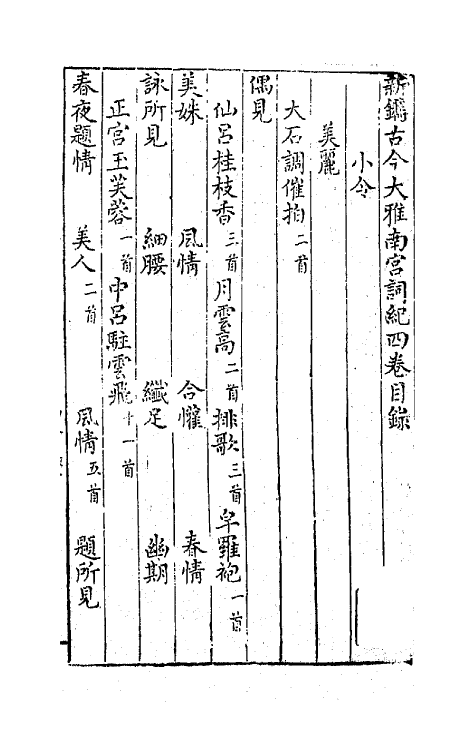 新鐫古今大雅南宮詞紀四卷目錄
小令
美麗
大石調催拍二首
偶見
仙呂桂枝香三首月雲高二首排歌三首皂羅袍一首
美姝　風情　合懽　春情
詠所見　細腰　纖足　幽期
正宮玉芙蓉一首中呂駐雲飛十一首
春夜題情　美人二首　風情五首　題所見